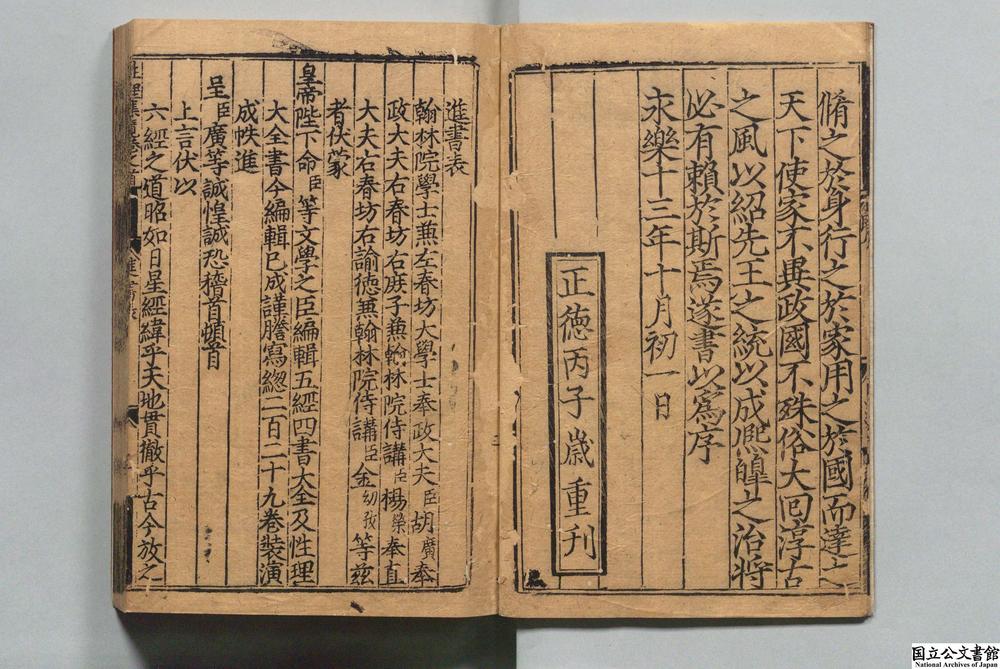 脩之於身行之於家用之於國而達之
天下使家不異政國不殊俗大回淳古
之風以紹先王之統以成熈皥之治將
必有賴於斯焉遂書以爲序
永樂十三年十月初一日
正德丙子歲重刊
進書表
翰林院學士兼左春坊大學士奉政大夫臣胡廣奉
政大夫右春坊右庶子兼翰林院侍講臣楊榮奉直
大夫右春坊右諭德兼翰林院侍講臣金幼孜等兹
者伏蒙
皇帝陛下命臣等文學之臣編輯五經四書大全及性理
大全書今編輯已成謹謄寫緫二百二十九卷裝潢
成帙進
呈臣廣等誠惶誠恐稽首頓首
上言伏以
六經之道昭如日星經緯乎天地貫徹乎古今放之
進書表
国立公文書館
National Archives of Japan